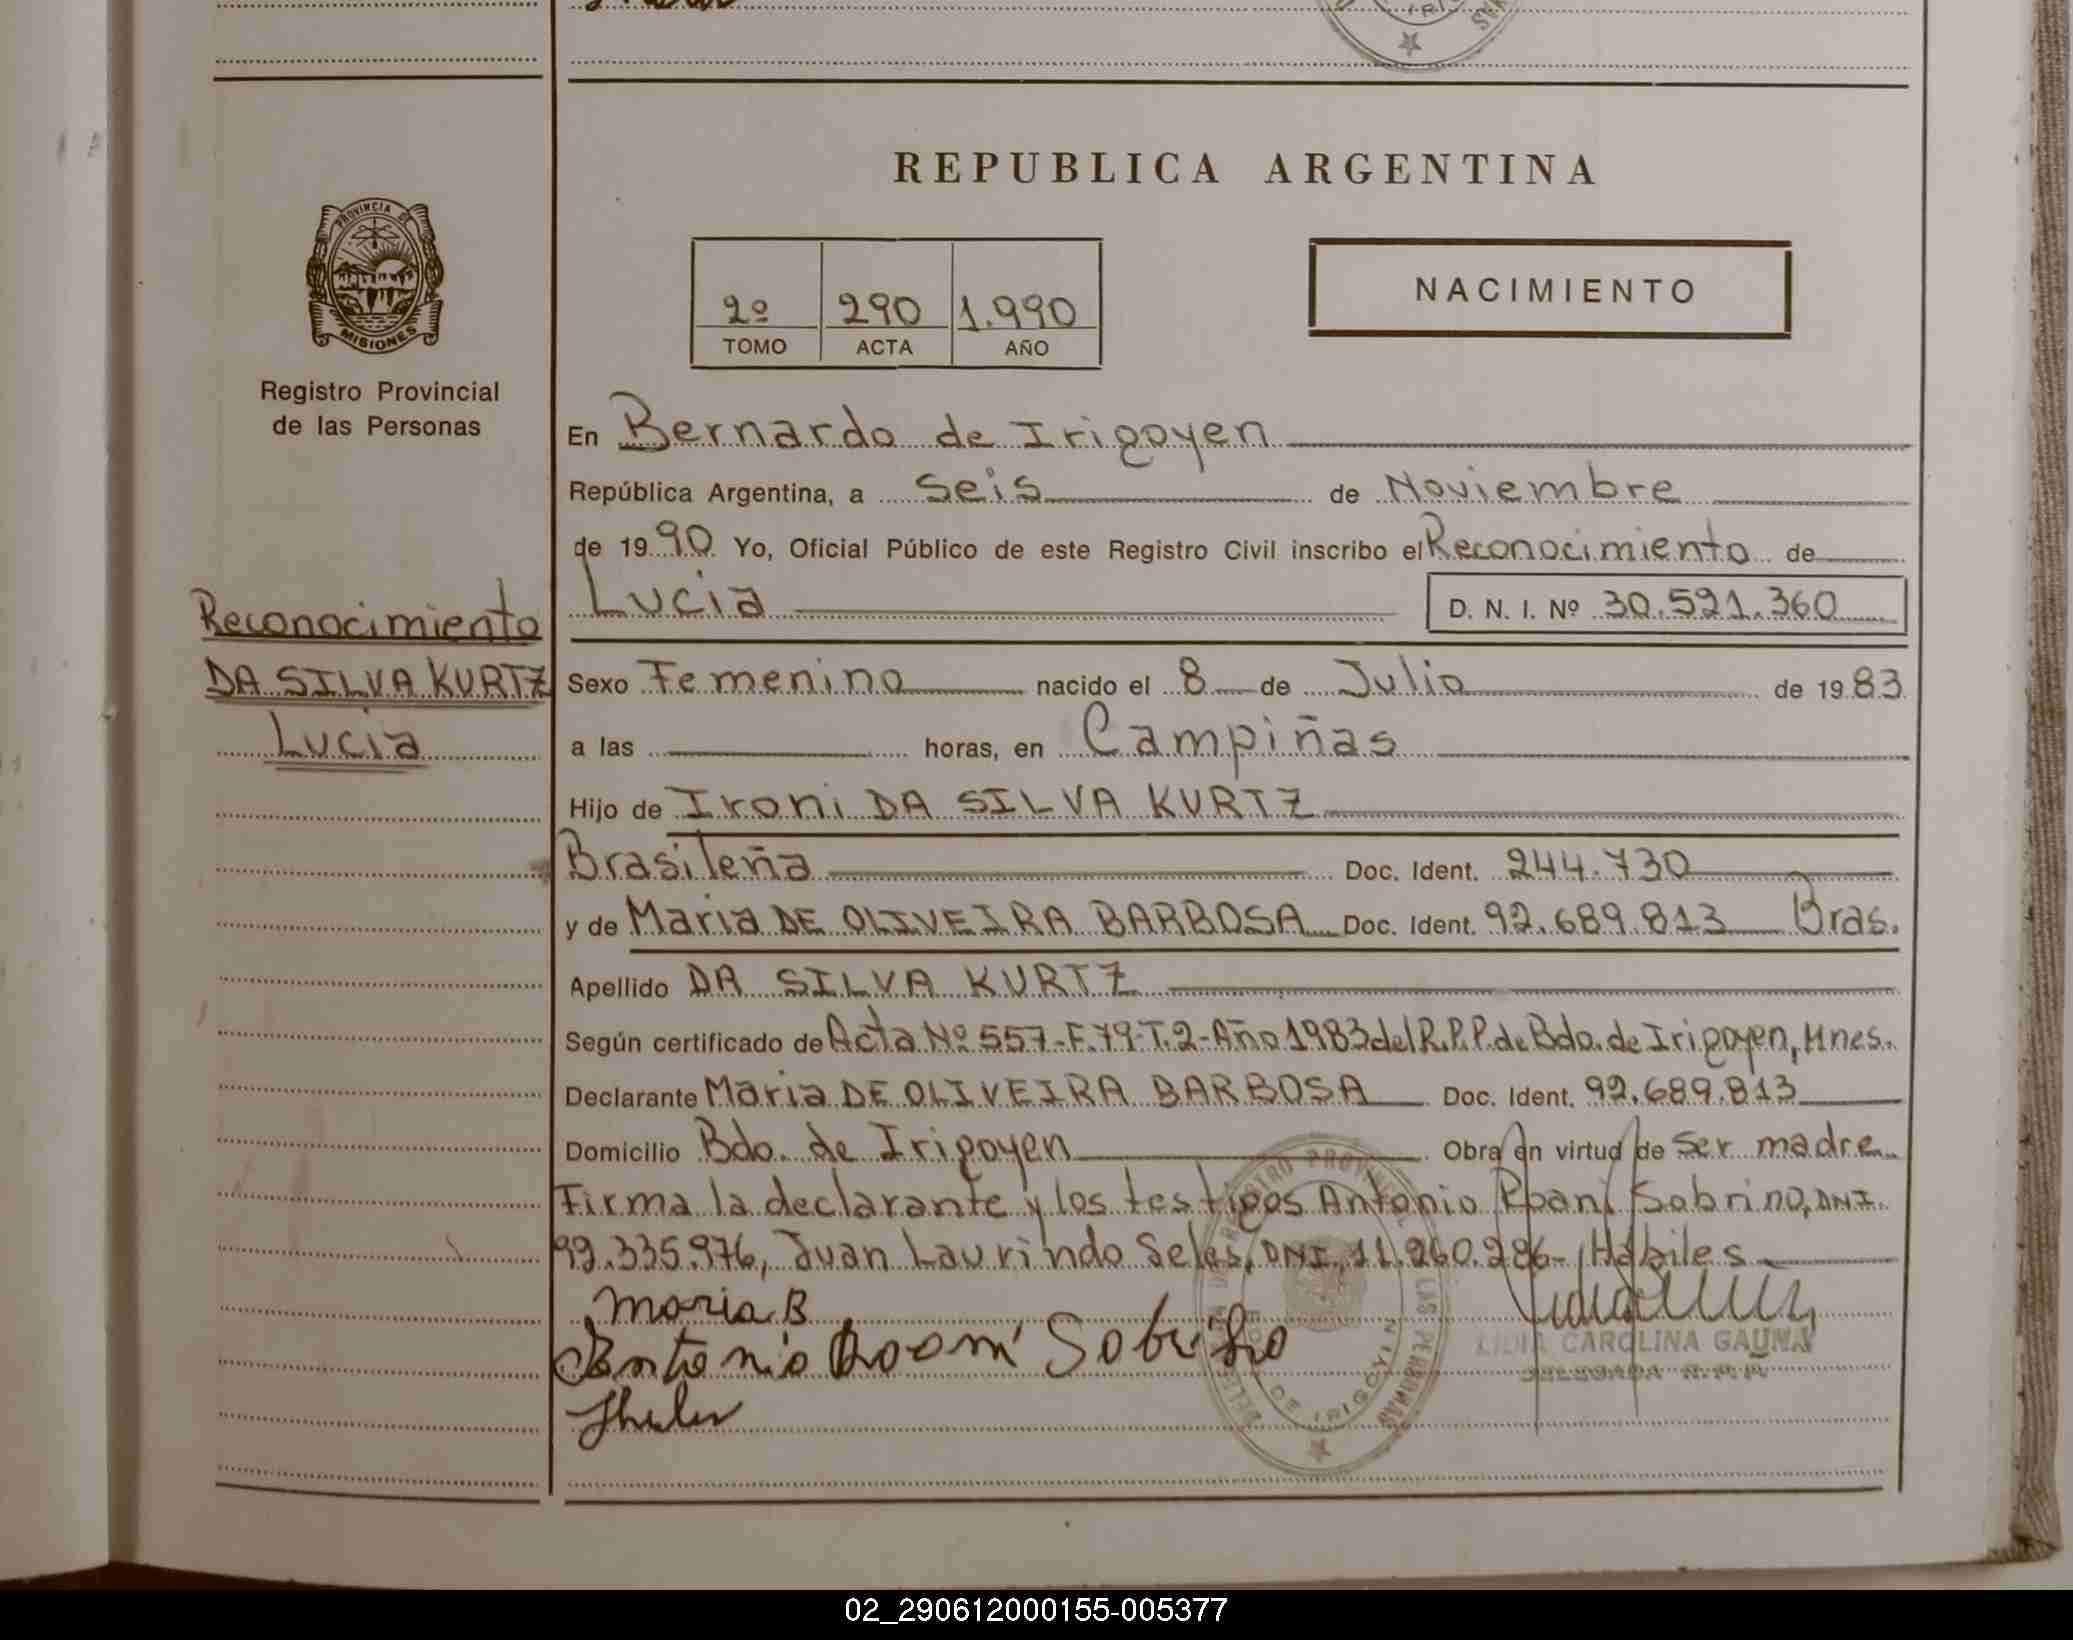 REPUBLICA ARGENTINA
PROVINCIA DE
MISIONES
Registro Provincial
de las Personas
2º 290 1.990
TOMO ACTA AÑO
NACIMIENTO
En Bernardo de Irigoyen
República Argentina, a seis de Noviembre
de 1990 Yo, Oficial Público de este Registro Civil inscribo el Reconocimiento de
Lucia D. N. I. Nº 30.521.360
Reconocimiento
DA SILVA KURTZ
Lucia
Sexo Femenino nacido el 8 de Julio de 1983
a las horas, en Campiñas
Hijo de Ironi DA SILVA KURTZ
Brasileña Doc. Ident. 244.730
y de Maria DE OLIVEIRA BARBOSA Doc. Ident. 92.689.813 Bras.
Apellido DA SILVA KURTZ
Según certificado de Acta Nº 557-F.79-T.2-Año 1983 del R.P.P. de Bdo. de Irigoyen, Mnes.
Declarante Maria DE OLIVEIRA BARBOSA Doc. Ident. 92.689.813
Domicilio Bdo. de Irigoyen Obra en virtud de ser madre
Firma la declarante y los testigos Antonio Roani Sobrino, DNI.
92.335.976, Juan Laurindo Seles, DNI. 11.260.286- Hábiles
Maria B
Antonio Roani Sobrinho
LIDIA CAROLINA GAUNA
DELEGADA R.P.P.
DE IRIGOYEN
02_290612000155-005377